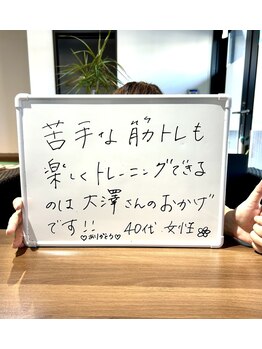 苦手な筋トレも
楽しくトレーニングできる
のは大澤さんのおかげ
です!! ♡ありがとう♡ 40代 女性